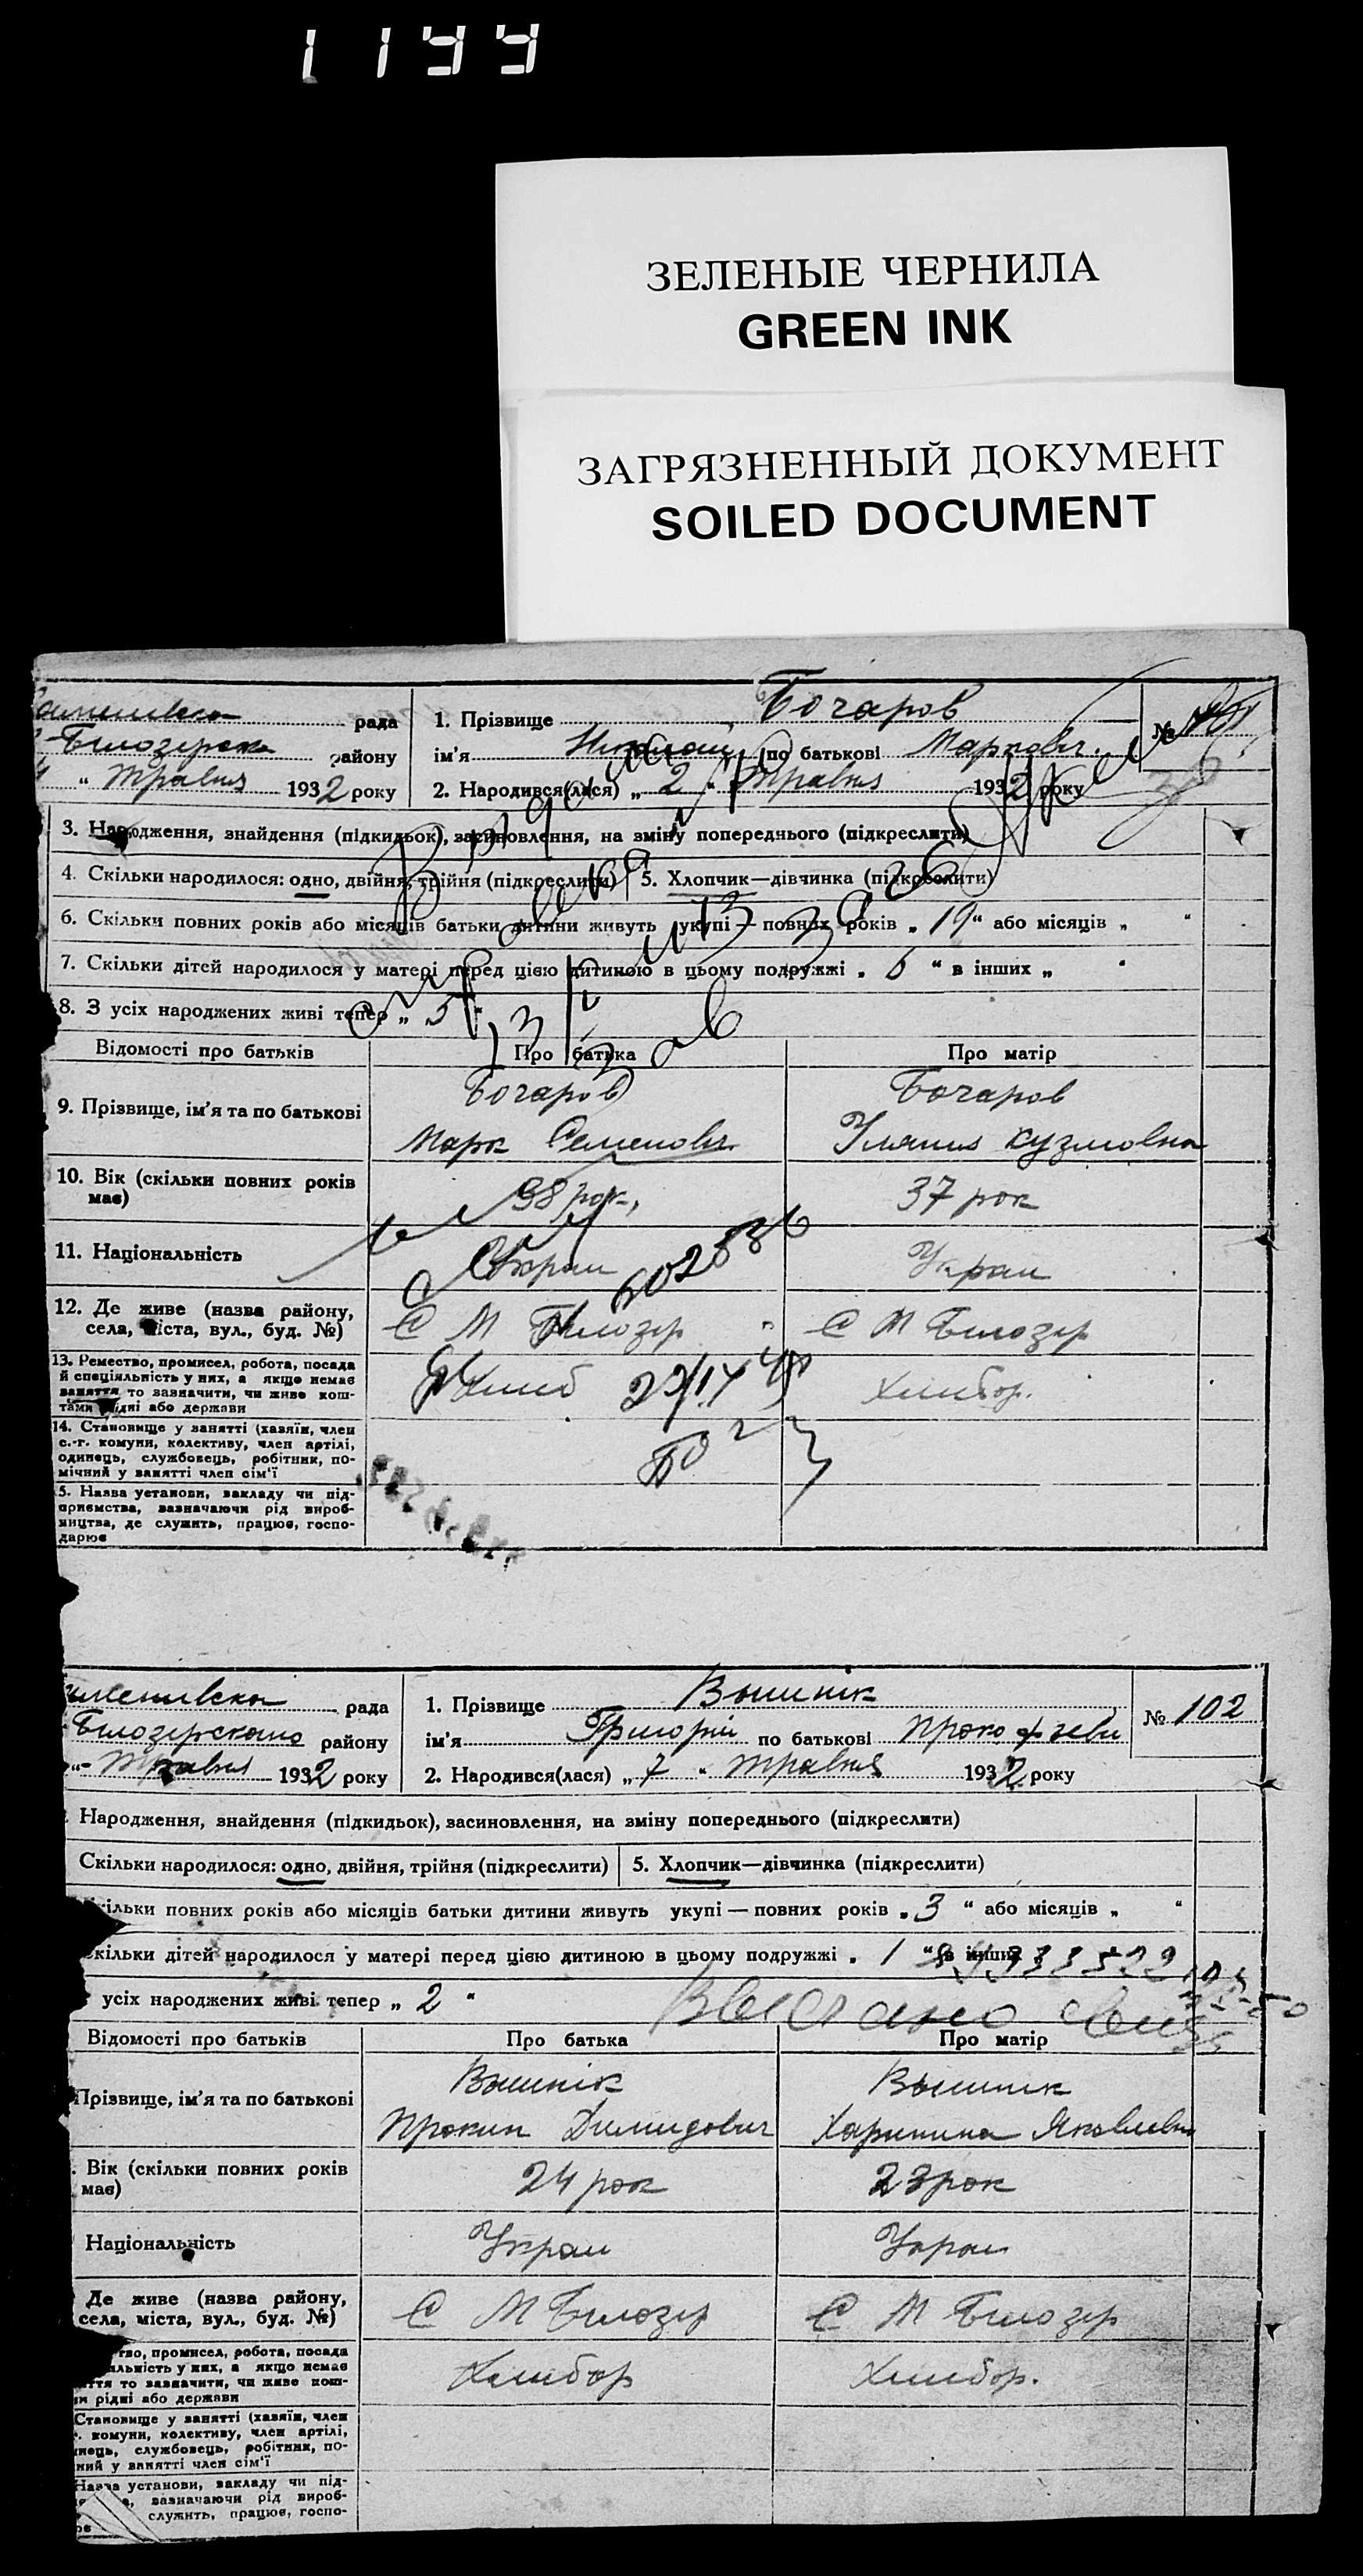 1199
ЗЕЛЕНЫЕ ЧЕРНИЛА
GREEN INK
ЗАГРЯЗНЕННЫЙ ДОКУМЕНТ
SOILED DOCUMENT
рада
Білозерск району
" Травня 1932 року
1. Прізвище Бочаров
ім'я Николай по батькові Маркович
2. Народився(лася) „ 2 " Травня 1932 року
№
3. Народження, знайдення (підкидьок), засиновлення, на зміну попереднього (підкреслити)
4. Скільки народилося: одно, двійня, трійня (підкреслити) 5. Хлопчик—дівчинка (підкреслити)
6. Скільки повних років або місяців батьки дитини живуть укупі — повних років „ 19 " або місяців „ "
7. Скільки дітей народилося у матері перед цією дитиною в цьому подружжі „ 6 " в інших „ "
8. З усіх народжених живі тепер „ 5 "
Відомості про батьків Про батька Про матір
9. Прізвище, ім'я та по батькові
Бочаров Бочаров
Марк Семенович Уляния Кузмовна
10. Вік (скільки повних років має) 38 рок, 37 рок
11. Національність Украи Украи
602886
12. Де живе (назва району, села, міста, вул., буд. №)
С М Білозер " С М Білозер
13. Ремество, промисел, робота, посада
й спеціяльність у них, а якщо немає
заняття то зазначити, чи живе кош-
тами рідні або держави
Хлиб Хлибор.
14. Становище у занятті (хазяїн, член
с.-г. комуни, колективу, член артілі,
одинець, службовець, робітник, по-
мічний у занятті член сім'ї
5. Назва установи, закладу чи під-
приємства, зазначаючи рід вироб-
ництва, де служить, працює, госпо-
дарює
рада
Білозерского району
"- Травня 1932 року
1. Прізвище Вышнік
ім'я Григорій по батькові Прокофзеви
2. Народився(лася) „ 7 " Травня 1932 року
№ 102
Народження, знайдення (підкидьок), засиновлення, на зміну попереднього (підкреслити)
Скільки народилося: одно, двійня, трійня (підкреслити) 5. Хлопчик—дівчинка (підкреслити)
кільки повних років або місяців батьки дитини живуть укупі — повних років „ 3 " або місяців „ "
кільки дітей народилося у матері перед цією дитиною в цьому подружжі „ 1 " в інших
усіх народжених живі тепер „ 2 "
Выдано
Відомості про батьків Про батька Про матір
Прізвище, ім'я та по батькові
Вышнік Вышник
Прокип Димидович Харитина Яковлевн
. Вік (скільки повних років має) 24 рок 23 рок
Національність Украи Украи
Де живе (назва району, села, міста, вул., буд. №)
С М Білозер С М Білозер
тво, промисел, робота, посада
яльність у них, а якщо немає
яття то зазначити, чи живе кош-
и рідні або держави
Хлибор Хлибор.
Становище у занятті (хазяїн, член
. комуни, колективу, член артілі,
инець, службовець, робітник, по-
ний у занятті член сім'ї
Назва установи, закладу чи під-
а, зазначаючи рід вироб-
служить, працює, госпо-